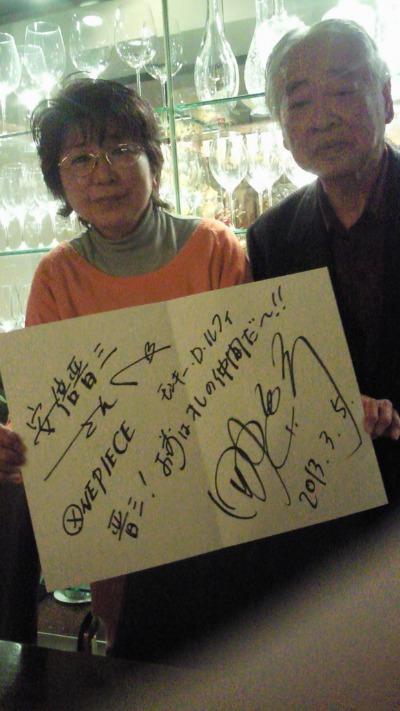 安倍晋三
さんへ
ONE PIECE
モンキー・D・ルフィ
晋三!お前はオレの仲間だ〜!!
2013.3.5